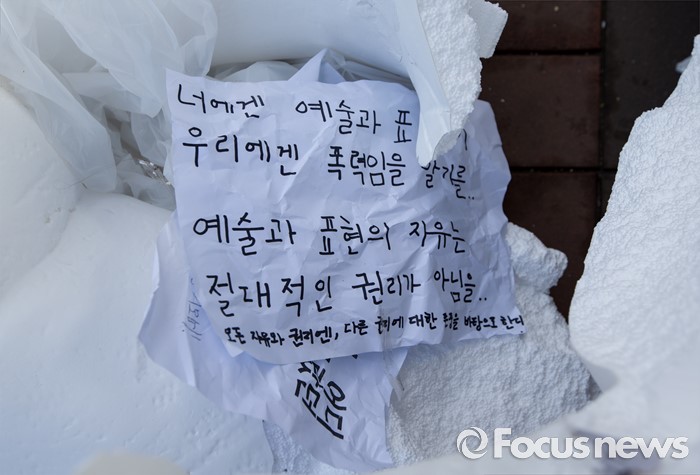 너에겐 예술과 표
우리에겐 폭력임을 알기를..
예술과 표현의 자유는
절대적인 권리가 아님을..
모든 자유와 권리엔, 다른 권리에 대한 존중을 바탕으로 한다.
Focusnews